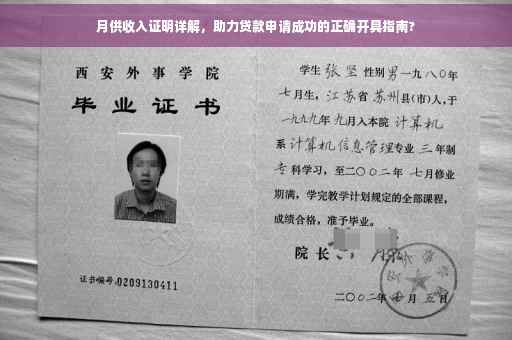 月供收入证明详解，助力贷款申请成功的正确开具指南?
西安外事学院
毕业证书
证书编号:0209130411
学生 张坚 性别 男 一九八〇年
七月生，江苏省 苏州县(市)人，于
一九九九年 九月入本院 计算机
系 计算机信息管理专业 三 年制
专 科学习，至二〇〇二年 七月修业
期满，学完教学计划规定的全部课程，
成绩合格，准予毕业。
院长
二〇〇二年 七 月 五 日